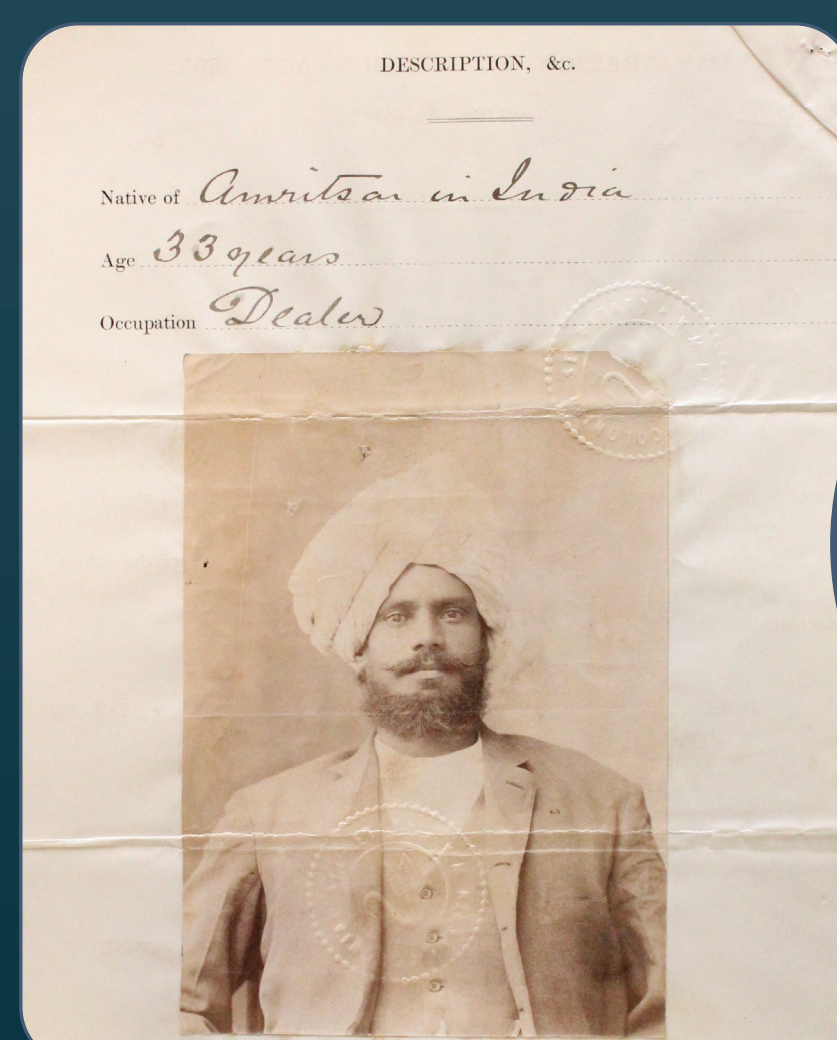 DESCRIPTION, &c.
Native of Amritsar in India
Age 33 years
Occupation Dealer